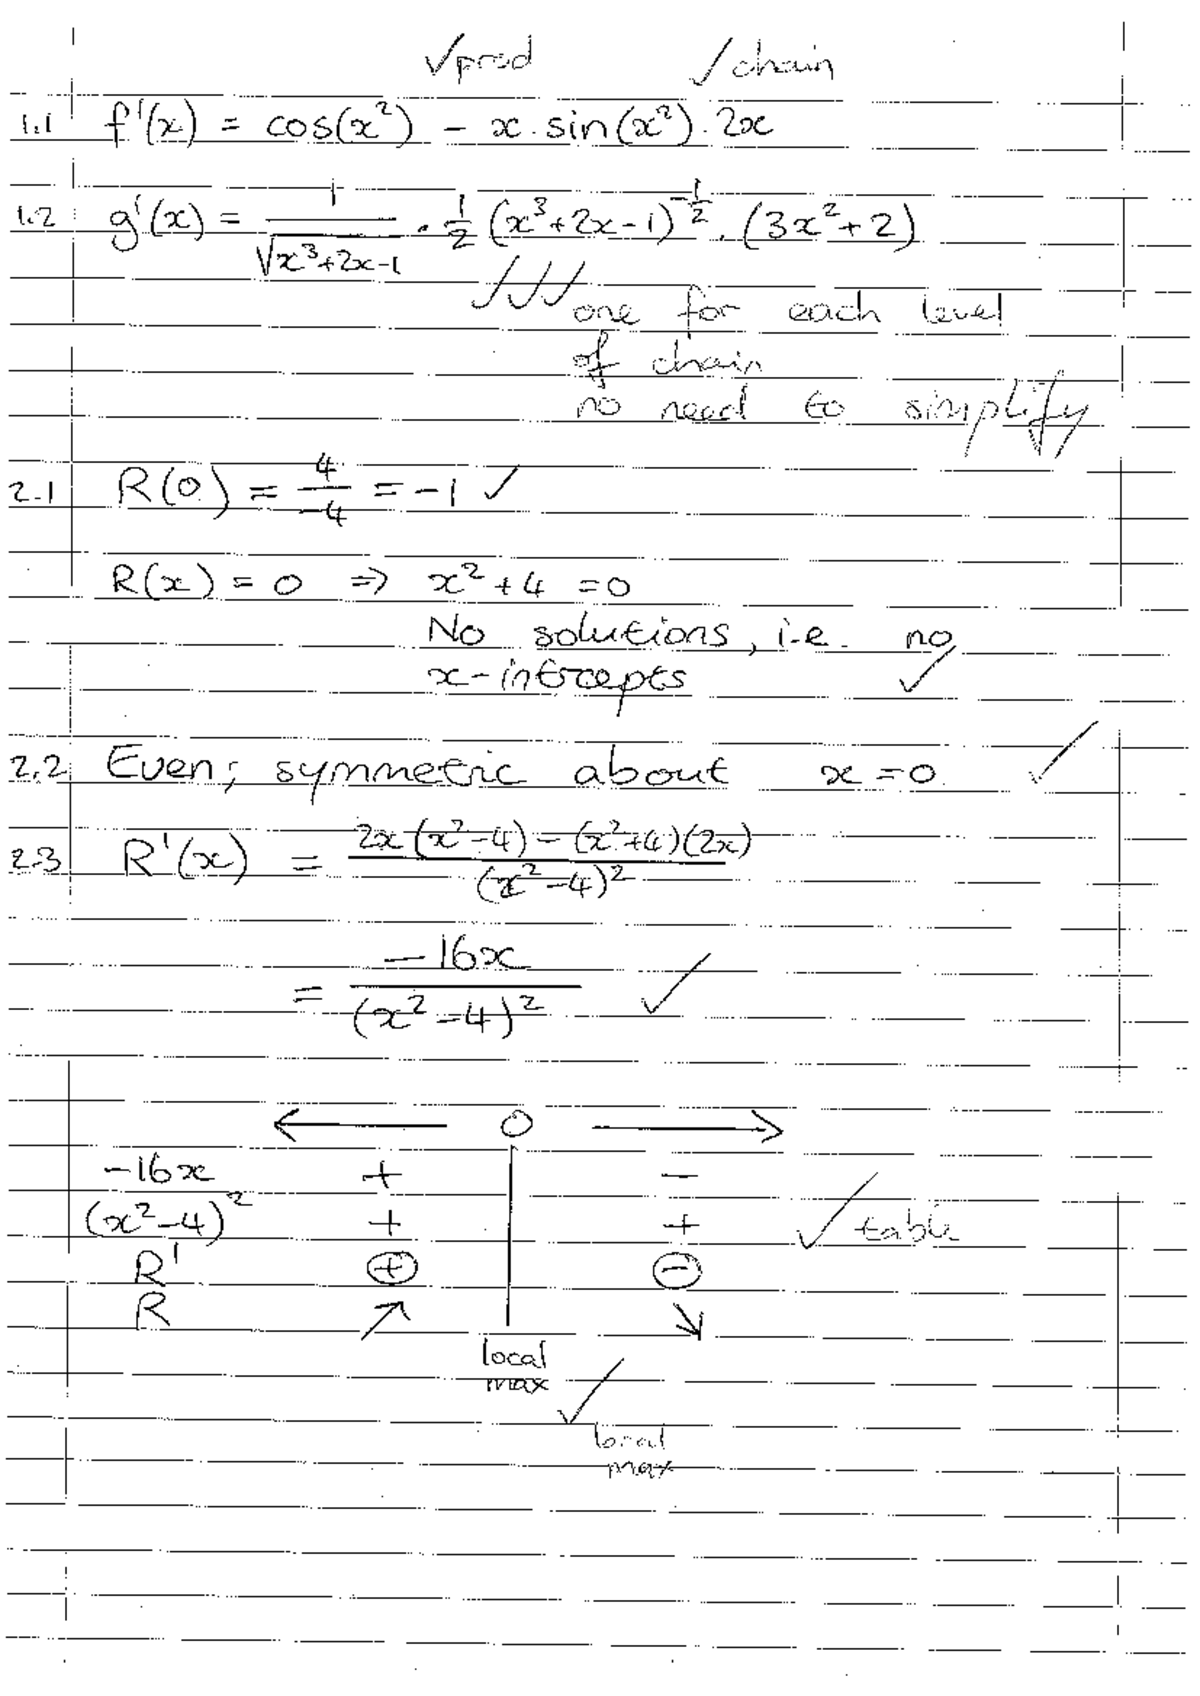 ✓prod ✓chain
1.1 f'(x) = cos(x²) - x.sin(x²).2x
1.2 g'(x) = 1/√(x³+2x-1) · 1/2 (x³+2x-1)^(-1/2) . (3x²+2)
✓✓✓ one for each level
of chain
no need to simplify
2.1 R(0) = 4/-4 = -1 ✓
R(x) = 0 ⇒ x²+4 = 0
No solutions, i.e. no
x-intercepts ✓
2.2 Even; symmetric about x=0. ✓
2.3 R'(x) = (2x(x²-4) - (x²+4)(2x))/(x²-4)²
= -16x/(x²-4)² ✓
← 0 →
-16x + -
(x²-4)² + + ✓ table
R' ⊕ ⊖
R ↗ ↘
local
max ✓
local
max